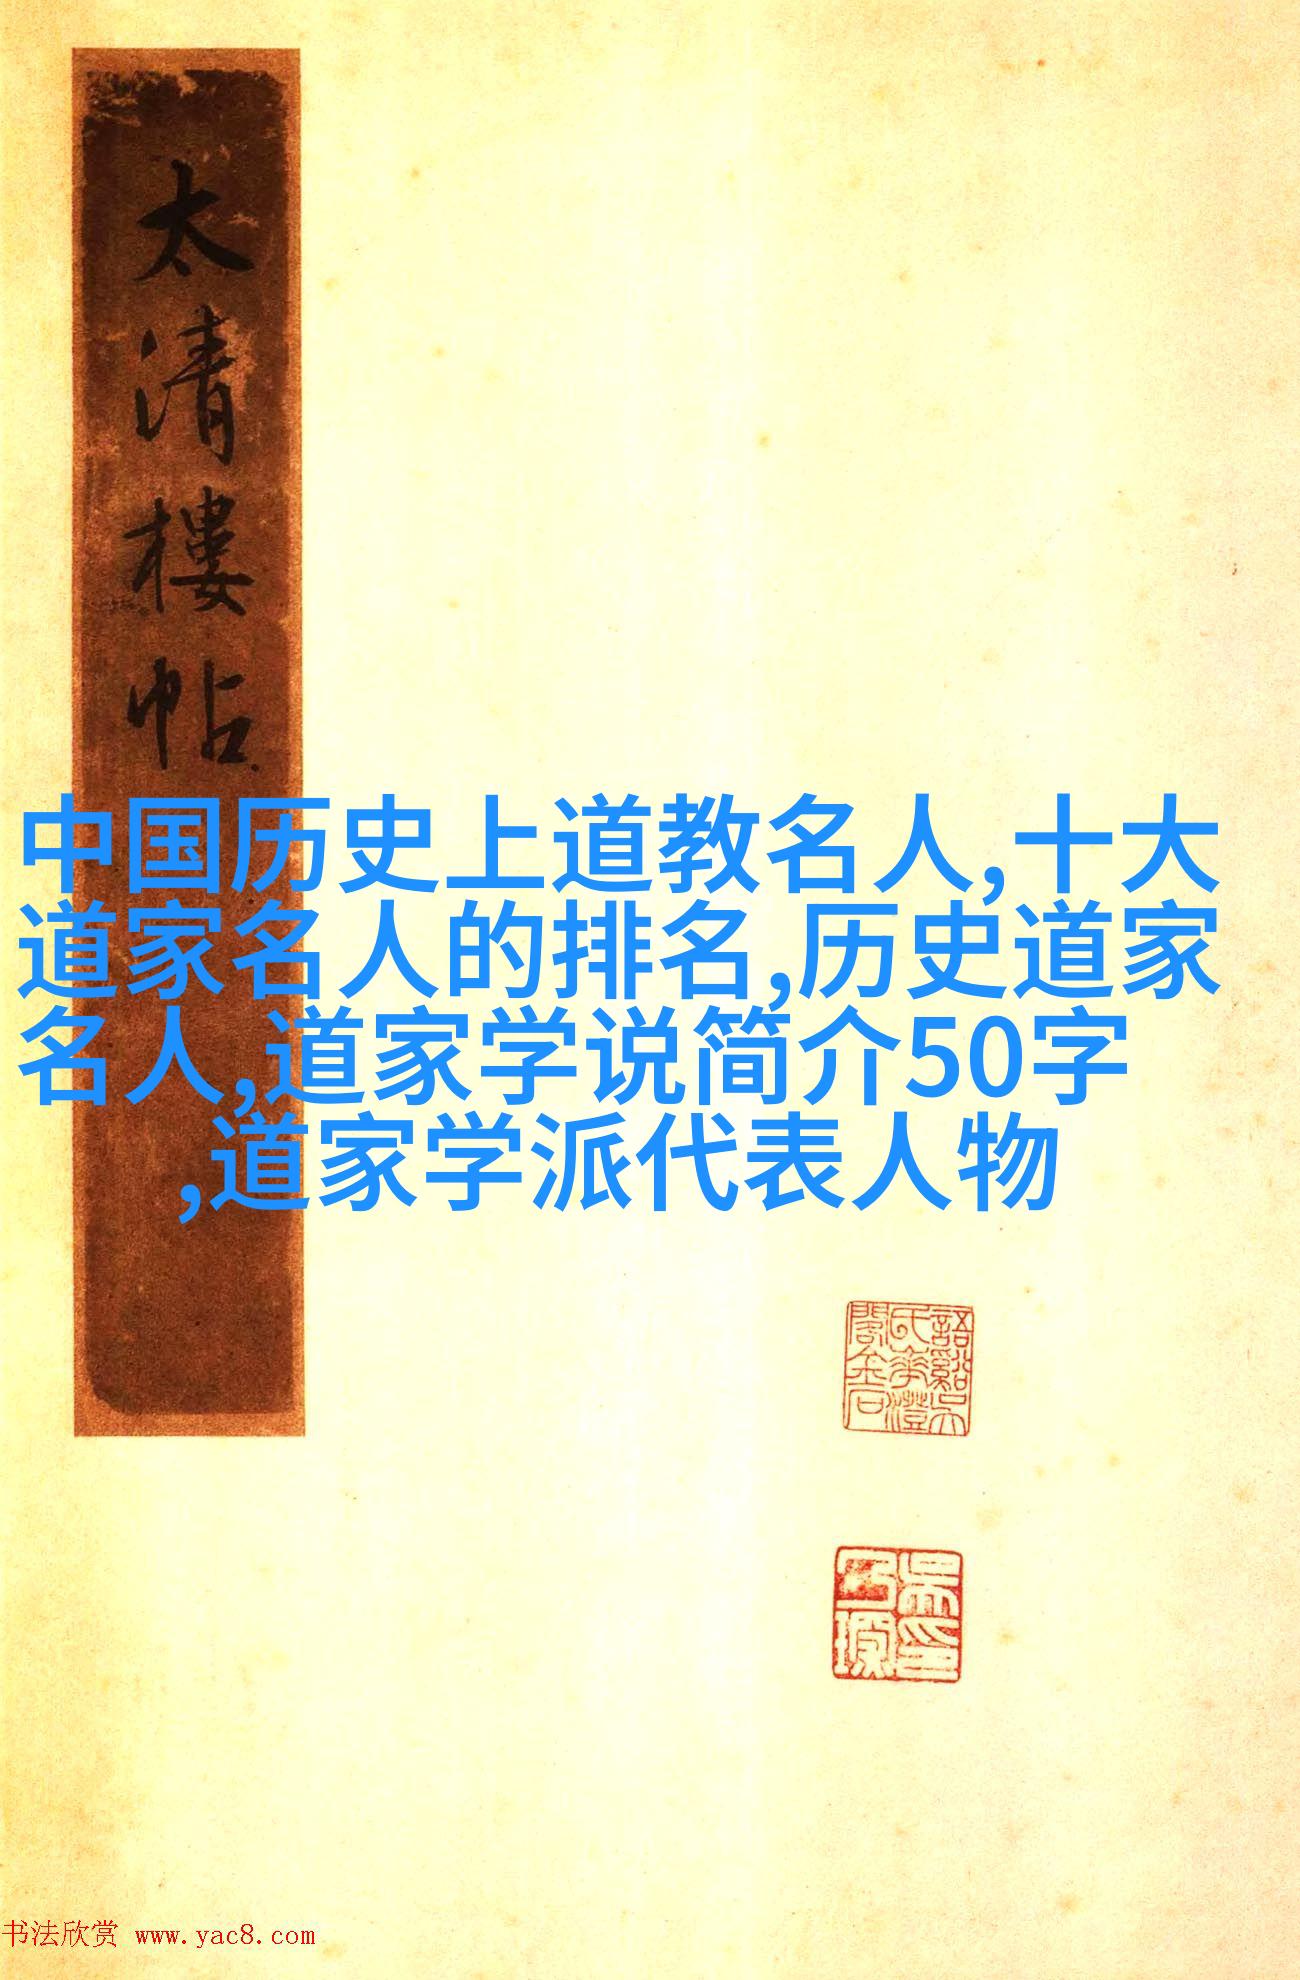 太清樓帖
中国历史上道教名人,十大
道家名人的排名,历史道家
名人,道家学说简介50字
,道家学派代表人物
书法欣赏 www.yac8.com